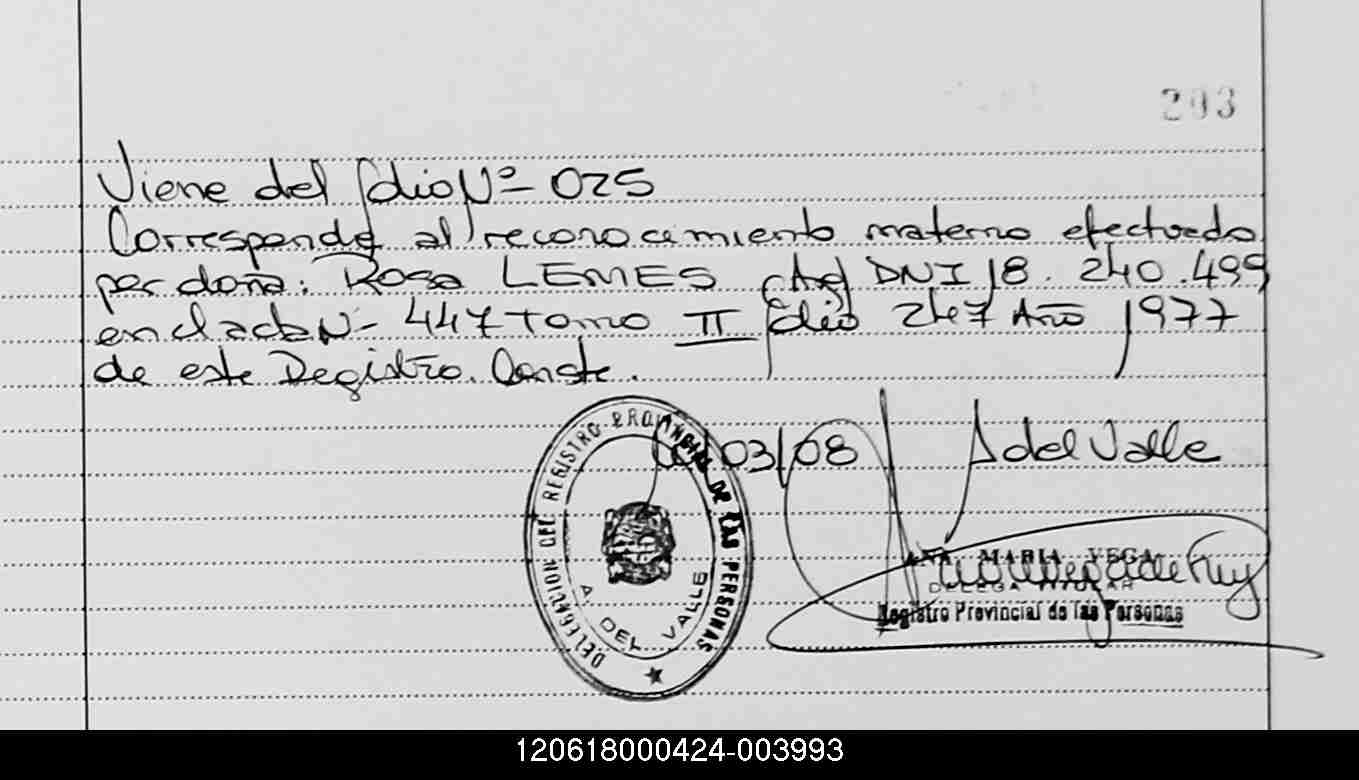 203
Viene del folio Nº 025
Corresponde al reconocimiento materno efectuado
por doña: Rosa LEMES, Arg DNI 18.240.499
en el acta Nº 447 Tomo II folio 247 Año 1977
de este Registro. Conste.
/03/08 A del Valle
DELEGACION DEL REGISTRO PROVINCIAL DE LAS PERSONAS
A. DEL VALLE
ANA MARIA VEGA
DELEGA TITULAR
Registro Provincial de las Personas
120618000424-003993